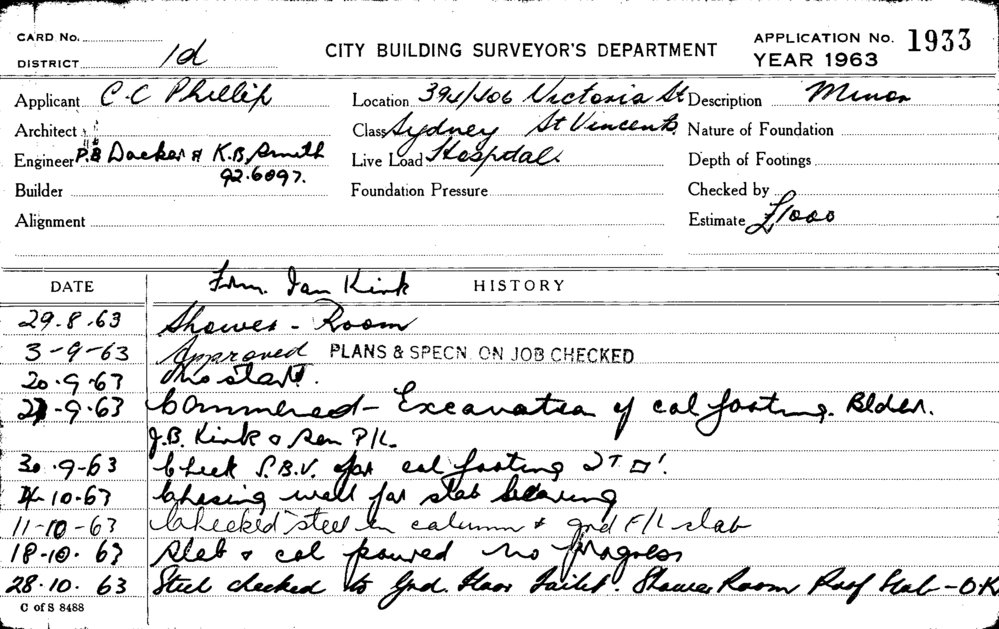 CARD No.
DISTRICT 1d
CITY BUILDING SURVEYOR'S DEPARTMENT
APPLICATION No. 1933
YEAR 1963
Applicant C.C Phillip Location 394/406 Victoria St Description Minor
Architect Class Sydney St Vincents Nature of Foundation
Engineer P.B Docker & K.B. Smith Live Load Hospital Depth of Footings
92.6097.
Builder Foundation Pressure Checked by
Alignment Estimate £1000
DATE Frm. Ian Kirk HISTORY
29.8.63 Shower - Room
3-9-63 Approved PLANS & SPECN. ON JOB CHECKED
20.9.63 No start.
27-9.63 Commenced - Excavation of col footing. Blder.
J.B. Kirk & Son P/L.
30.9-63 Check S.B.V. for col footing 2T □'.
4-10-63 Chasing wall for slab bearing
11-10-63 Checked steel in column & gnd F/L slab
18-10.63 Slab & col poured no progress
28.10.63 Steel checked to Gnd. Floor Toilet. Shower Room Roof Slab - O.K
C of S 8488